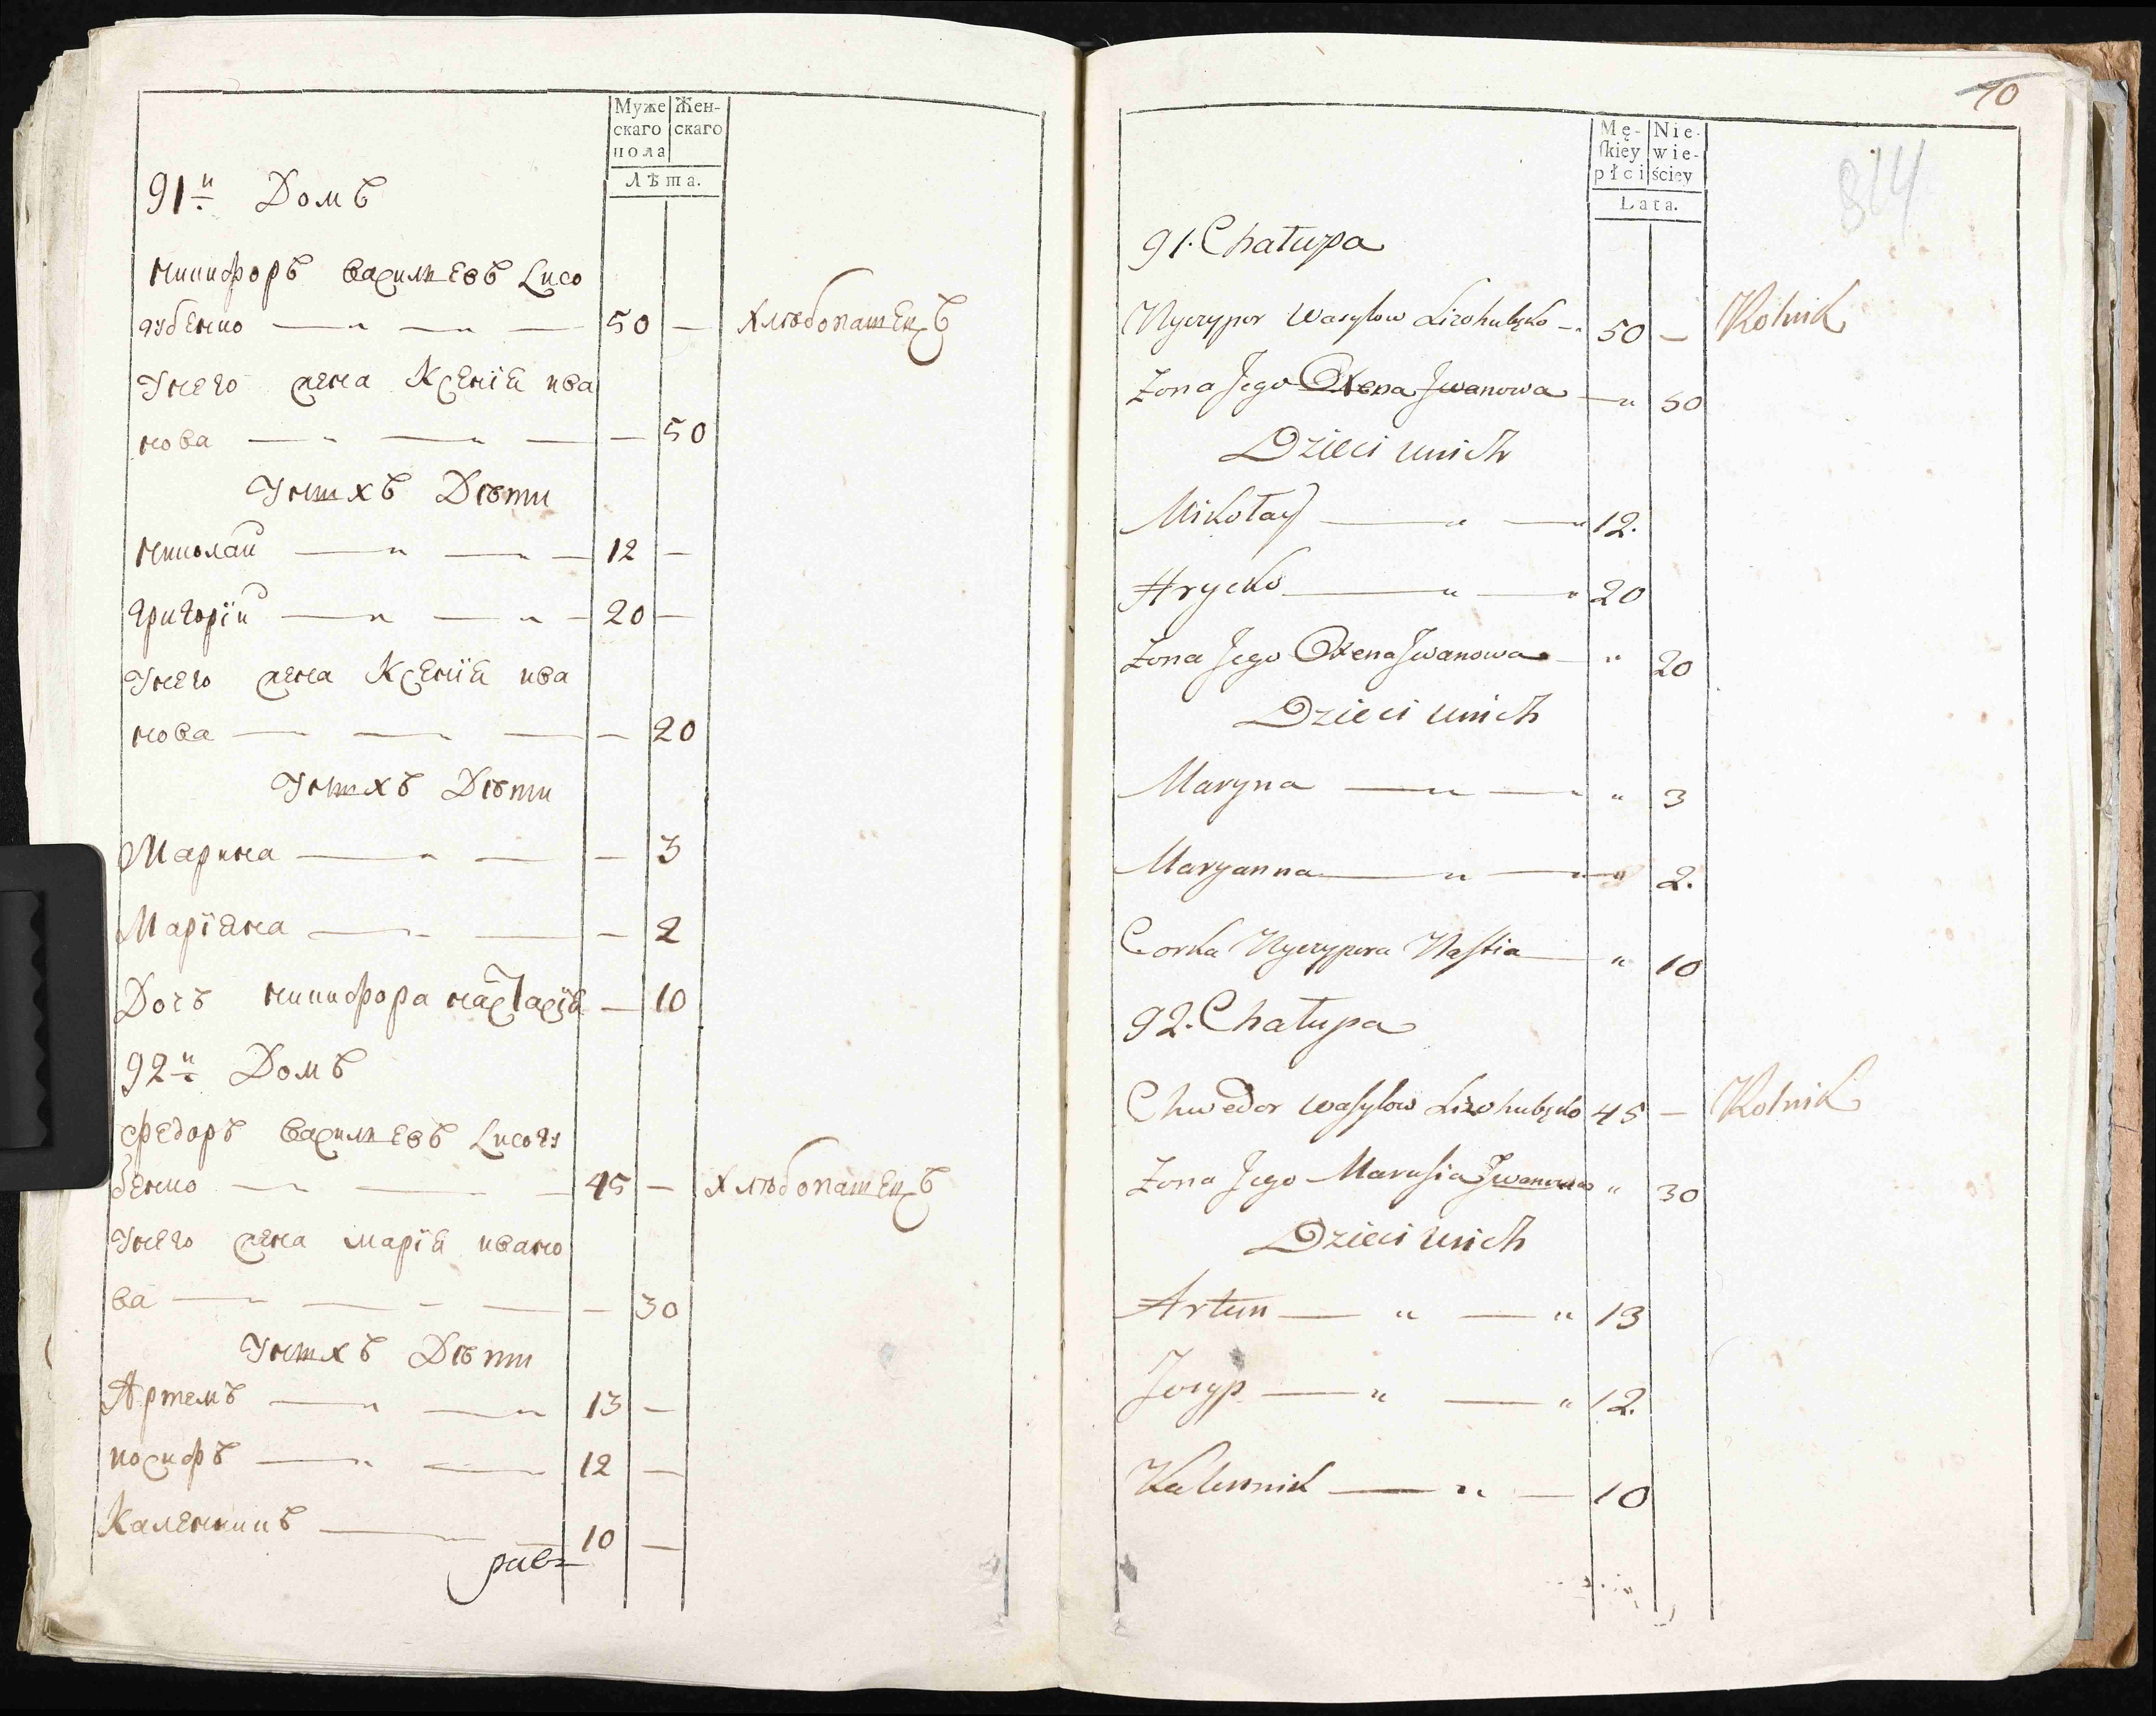 Муже Жен-
скаго скаго
пола
Лѣта.
91й Домъ
Никифоръ Васильевъ Лисо
губенко 50 — Хлѣбопашецъ
У него жена Ксенія Ива
нова — 50
У нихъ Дѣти
Николай 12 —
Григорій 20 —
У него жена Ксенія Ива
нова — 20
У нихъ Дѣти
Марина — 3
Маріяна — 2
Дочь Никифора Настасія — 10
92й Домъ
Федоръ Васильевъ Лисогу
бенко 45 — Хлѣбопашецъ
У него жена Марія Ивано
ва — 30
У нихъ Дѣти
Артемъ 13 —
Иосифъ 12 —
Каленникъ 10 —
10
814
Mę- Nie-
ſkiey wie-
płci ściey
Lata.
91. Chałupa
Nyczypor Wasylow Lizohubęko 50 — Rolnik
Zona Jego Oxena Jwanowa 50
Dzieci unich
Mikołay 12.
Hrycko 20
Zona Jego Oxena Jwanowa 20
Dzieci unich
Maryna 3
Maryanna 2.
Corka Nyczypora Naſtia 10
92. Chałupa
Chwedor Waſylow Lizohubęko 45 — Rolnik
Zona Jego Maruſia Jwanowa 30
Dzieci unich
Artem 13
Jozyp 12.
Kalennik 10